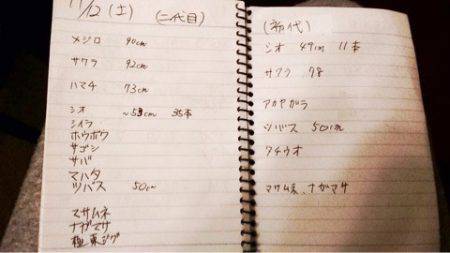 11/12 (土) (二代目)
メジロ 90cm
サワラ 92cm
ハマチ 73cm
シオ ~53cm 35本
シイラ
ホウボウ
サゴシ
サバ
マハタ
ツバス 50cm
マサムネ
ナガマサ
極東ジグ
(初代)
シオ 49cm 11本
サワラ 98
アカヤガラ
ツバス 50cm
タチウオ
マサムネ、ナガマサ